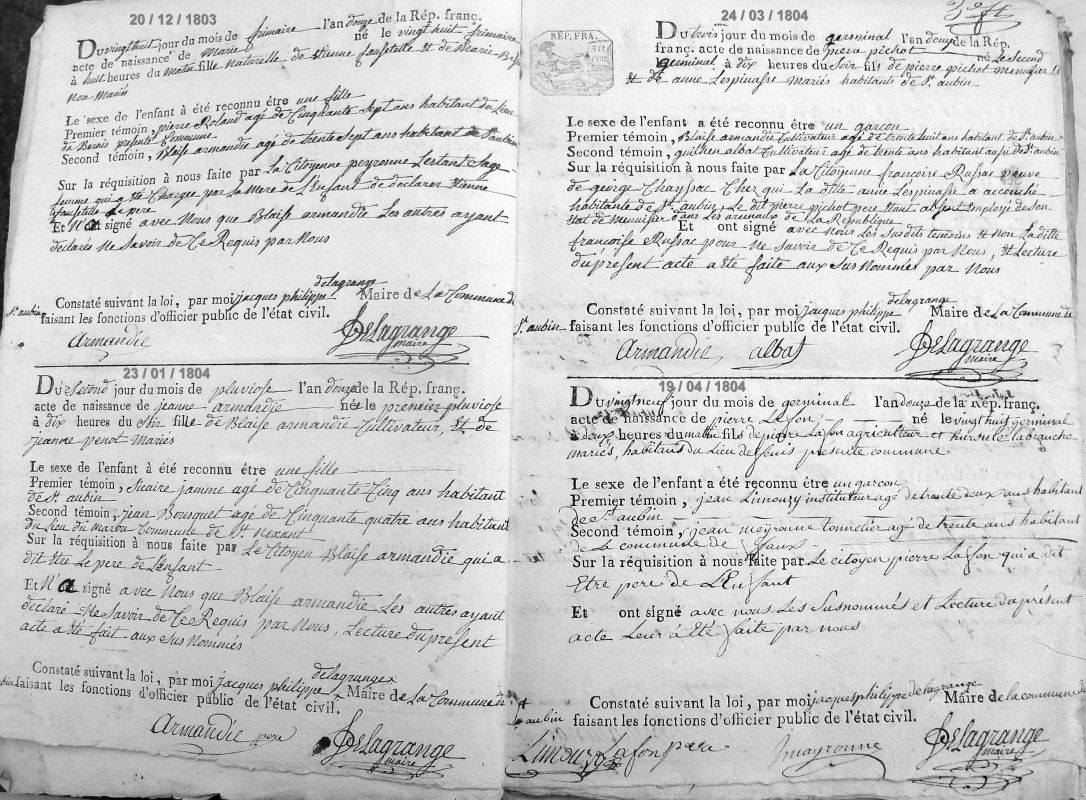 20 / 12 / 1803
Du vingt huit jour du mois de frimaire l'an douze de la Rép. franç.
acte de naissance de Marie né le vingt huit frimaire
à huit heures du matin fille naturelle de etienne faustelle et de Marie
non Mariés
Le sexe de l'enfant à été reconnu être une fille
Premier témoin, pierre Roland agé de Cinquante Sept ans habitant du Lieu
de Bernis presente Commune
Second témoin, Blaise armandie agé de trente Sept ans habitant de St aubin
Sur la réquisition à nous faite par La Citoyenne peyronne Lestant Sage
femme qui a été Chargée par la Mere de L'Enfant de declarer etienne
faustelle Le pere
Et N'a signé avec Nous que Blaise armandie Les autres ayant
declarés Ne Savoir de Ce Requis par Nous
Constaté suivant la loi, par moi jacques philippe delagrange Maire de La Commune de
St aubin faisant les fonctions d'officier public de l'état civil.
Armandie DeLagrange
maire
23 / 01 / 1804
Du Second jour du mois de pluviose l'an douze de la Rép. franç.
acte de naissance de jeanne armandie née le premier pluviose
à dix heures du Soir fille de Blaise armandie Cultivateur, et de
jeanne penot Mariés
Le sexe de l'enfant à été reconnu être une fille
Premier témoin, jamme agé de Cinquante Cinq ans habitant
de St aubin
Second témoin, jean Bousquet agé de Cinquante quatre ans habitant
du Lieu du Marou Commune de St Nexant
Sur la réquisition à nous faite par Le Citoyen Blaise armandie qui a
dit être Le pere de L'enfant
Et N'a signé avec Nous que Blaise armandie Les autres ayant
declaré Ne Savoir de Ce Requis par Nous, Lecture du present
acte a été fait aux Sus Nommés
Constaté suivant la loi, par moi jacques philippe delagrange Maire de La Commune de
faisant les fonctions d'officier public de l'état civil.
Armandie pere DeLagrange
maire
24 / 03 / 1804
RÉP. FRA.
Du trois jour du mois de germinal l'an douze de la Rép.
franç. acte de naissance de pierre pichot né le Second
germinal à dix heures du Soir fils de pierre pichot menusier
et de anne Lespinasse Mariés habitants de St. aubin
Le sexe de l'enfant a été reconnu être un garçon
Premier témoin, Blaise armandie Cultivateur agé de trente huit ans habitant de St. aubin
Second témoin, albat Cultivateur agé de trente ans habitant aussi de St aubin
Sur la réquisition à nous faite par La Citoyenne francoise Russac veuve
de george Chayssac Cher qui La ditte anne Lespinasse a accouché
habitante de St. aubin, Le dit pierre pichot pere Etant absent Employé de Son
Etat de Menuisier dans Les arcenaux de La République
Et ont signé avec Nous Les Susdits temoins et Non La ditte
francoise Russac pour Ne Savoir de Ce Requis par Nous, et Lecture
du present acte a été faite aux Sus Nommés par Nous
Constaté suivant la loi, par moi jacques philippe delagrange Maire de La Commune de
St aubin faisant les fonctions d'officier public de l'état civil.
Armandie albat DeLagrange
maire
19 / 04 / 1804
Du vingt neuf jour du mois de germinal l'an douze de la Rép. franç.
acte de naissance de pierre Lafon né le vingt huit germinal
à deux heures du matin fils de pierre Lafon agriculteur et labranche
mariés, habitans du Lieu de presente commune
Le sexe de l'enfant a été reconnu être un garçon
Premier témoin, jean Limouzy instituteur agé de trente deux ans habitant
de St. aubin
Second témoin, jean meyronne tonnelier agé de trente ans habitant
de La commune de faux
Sur la réquisition à nous faite par Le citoyen pierre Lafon qui a dit
Etre pere de L'Enfant
Et ont signé avec nous Les Susnommés et Lecture du présent
acte Leur à été faite par nous
Constaté suivant la loi, par moi jacques philippe delagrange Maire de la commune de
St aubin faisant les fonctions d'officier public de l'état civil.
Limouzy Lafon pere DeLagrange
maire